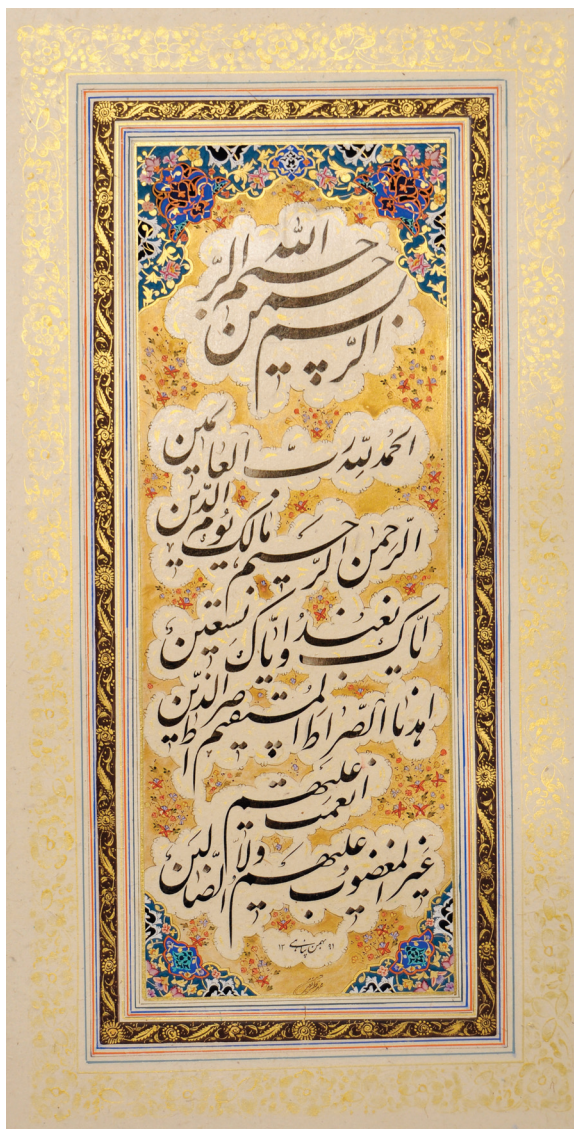 بسم الله الرحمن الرحیم
الحمد لله ربّ العالمین
الرّحمن الرّحیم مالک یوم الدّین
ایّاک نعبدُ وایّاک نستعین
اهدنا الصّراط المستقیم صراط الذّین
انعمت علیهم
غیر المغضوب علیهم ولا الضّالین
بهمن پناهی ۱۳۹۱